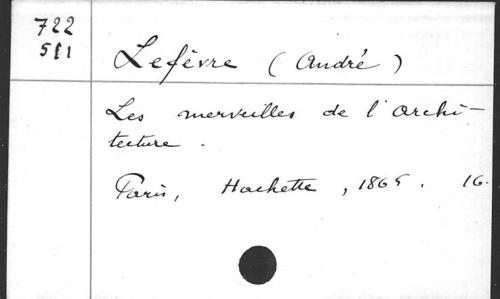 722
511
Lefèvre (André)
Les merveilles de l'archi-
tecture.
Paris, Hachette, 1865. 16.